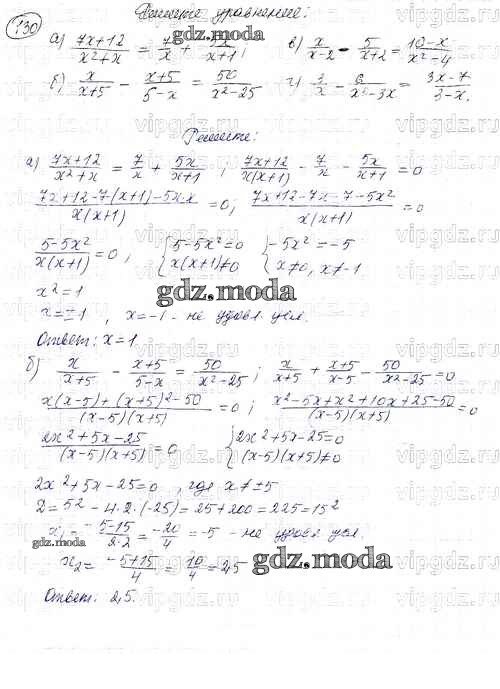 130
Решите уравнение:
а) (7x+12)/(x²+x) = 7/x + 5x/(x+1); в) x/(x-2) - 5/(x+2) = (10-x)/(x²-4)
б) x/(x+5) - (x+5)/(5-x) = 50/(x²-25) г) /x - /(x²-3x) = (3x-7)/(3-x).
Решение:
а) (7x+12)/(x²+x) = 7/x + 5x/(x+1); (7x+12)/(x(x+1)) - 7/x - 5x/(x+1) = 0
(7x+12-7(x+1)-5x·x)/(x(x+1)) = 0; (7x+12-7x-7-5x²)/(x(x+1)) = 0
(5-5x²)/(x(x+1)) = 0, { 5-5x²=0 { -5x²=-5
x(x+1)≠0 x≠0, x≠-1
x²=1
x=±1, x=-1 - не удовл усл.
gdz.moda
Ответ: x=1.
б) x/(x+5) - (x+5)/(5-x) = 50/(x²-25); x/(x+5) + (x+5)/(x-5) - 50/(x²-25) = 0
(x(x-5)+(x+5)²-50)/((x-5)(x+5)) = 0; (x²-5x+x²+10x+25-50)/((x-5)(x+5)) = 0
(2x²+5x-25)/((x-5)(x+5)) = 0 { 2x²+5x-25=0
(x-5)(x+5)≠0
2x²+5x-25=0, где x≠±5
D=5²-4·2·(-25)=25+200=225=15²
x₁=(-5-15)/(2·2)=-20/4=-5 - не удовл усл.
gdz.moda
x₂=(-5+15)/4=10/4=2,5
gdz.moda
Ответ: 2,5.
vipgdz.ru